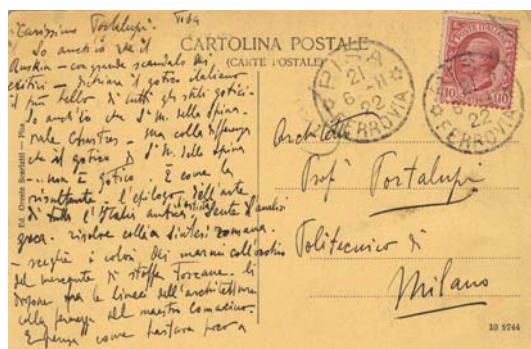 Pisa
Carissimo Portalupi.
So anch'io che il
Ruskin – con grande scandalo dei
critici – dichiara il gotico italiano
il più bello di tutti gli stili gotici.
So anch'io che S. M. della Spina
vale Chartres – ma colla differenza
che il gotico di S. M. della Spina
– non è gotico. È come la
risultante – l'epilogo dell'arte
di tutta l'Italia antica, sente l'analisi
greca. risolve colla sintesi romana.
– sceglie i colori dei marmi coll'occhio
del mercante di stoffe toscane. li
dispone fra le linee dell'architettura
colla fermezza del maestro comacino.
E pensa come bastava poco a
CARTOLINA POSTALE
(CARTE POSTALE)
PISA
21
6 - 11
22
FERROVIA
POSTE ITALIANE
10 10
6
22
FERROVIA
Architetto
Prof Portalupi
Politecnico di
Milano
Ed. Oreste Scarlatti - Pisa
10 9744